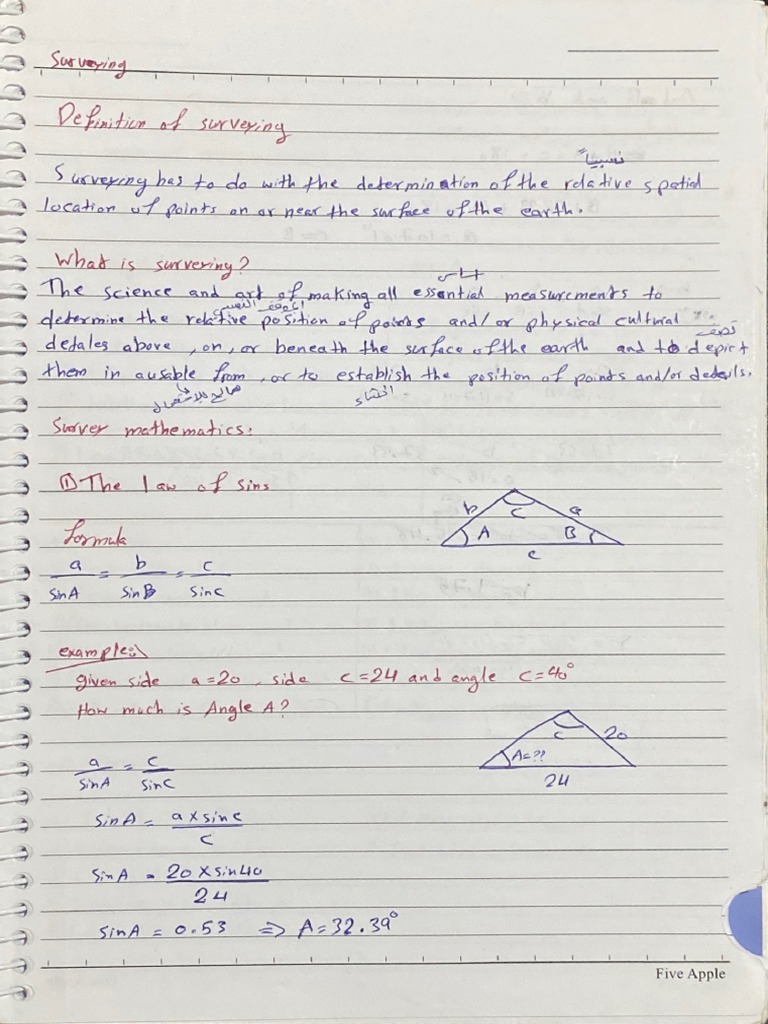 Surveying
Definition of surveying
نسبياً
Surveying has to do with the determination of the relative spatial
location of points on or near the surface of the earth.
What is surveying?
The science and art of making all essential measurements to
determine the relative position of points and/or physical cultural
detales above, on, or beneath the surface of the earth and to depict
them in ausable from, or to establish the position of points and/or details.
Surver mathematics.
① The law of sins
b C a
A B
c
formula
a/sinA = b/sinB = c/sinc
example:
given side a=20, side c=24 and angle c=40°
How much is Angle A?
c 20
A=??
24
a/sinA = c/sinc
sinA = a×sinc/c
sinA = 20×sin40/24
sinA = 0.53 ⇒ A=32.39°
Five Apple